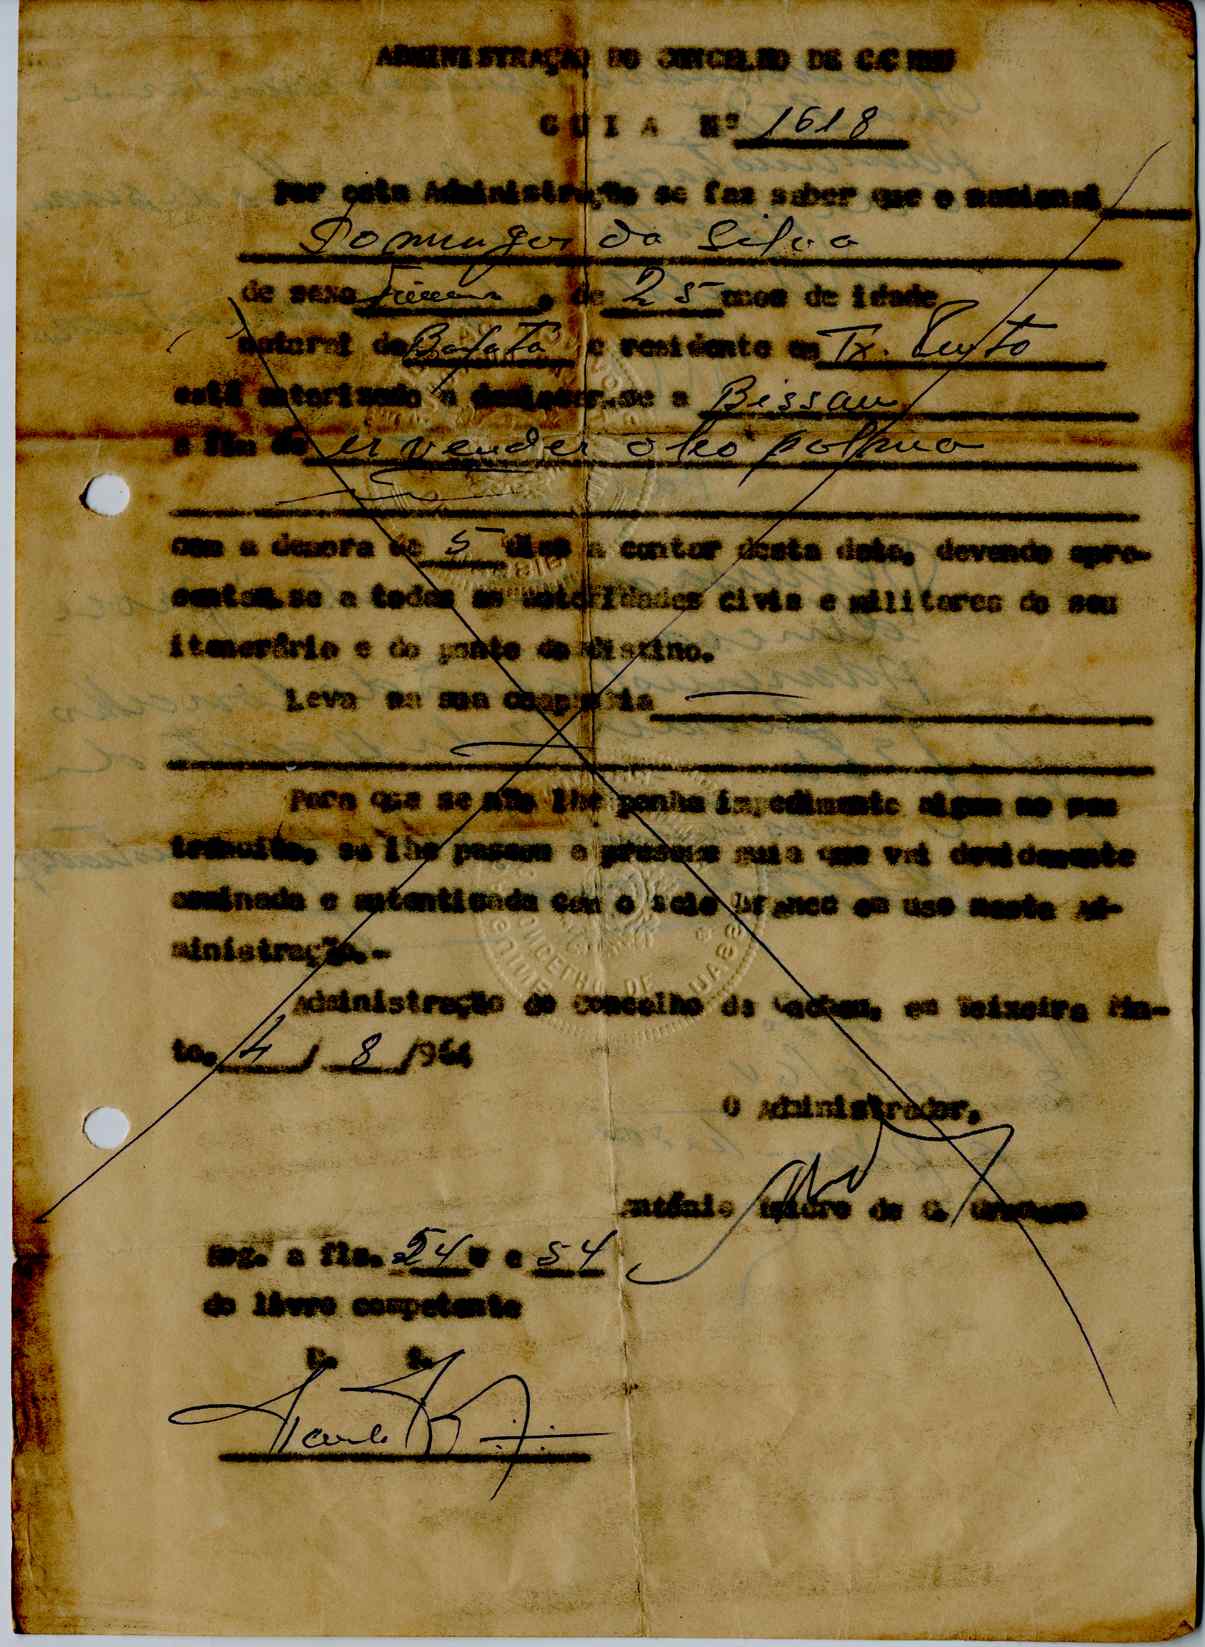 ADMINISTRAÇÃO DO CONCELHO DE CACHEU
G U I A Nº 1618
Por esta Administração se faz saber que o nacional
Domingos da Silva
de sexo, de 25 anos de idade
natural de Bafatá e residente em Tx. Pinto
está autorizado a deslocar.se a Bissau
a fim de ir vender óleo palma
com a demora de 5 dias a contar desta data, devendo apre-
sentar.se a todas as autoridades civis e militares do seu
itenerário e do ponto de distino.
Leva na sua companhia
Para que se não lhe ponha impedimento algum no seu
trânsito, se lhe passou a presente guia que vai devidamente
assinada e autenticada com o selo branco em uso nesta Ad-
ministração.-
Administração do Concelho de Cacheu, em Teixeira Pin-
to, 4 / 8 /964
O Administrador,
António Isidro de C.
Reg. a fls. 54 v e 54
do livro competente